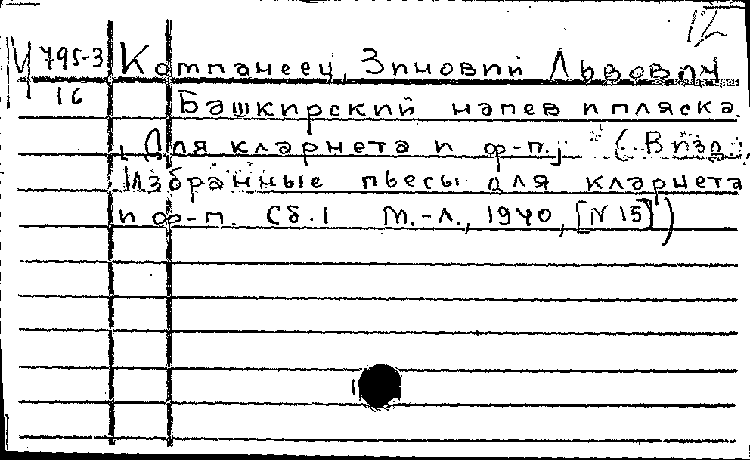 12
Ч 795-3 Компанеец, Зиновий Львович
16
Башкирский напев и пляска.
[Для кларнета и ф-п.] (В изд.:
Избранные пьесы для кларнета
и ф-п. Сб. 1 М.-Л., 1940, [N 15])